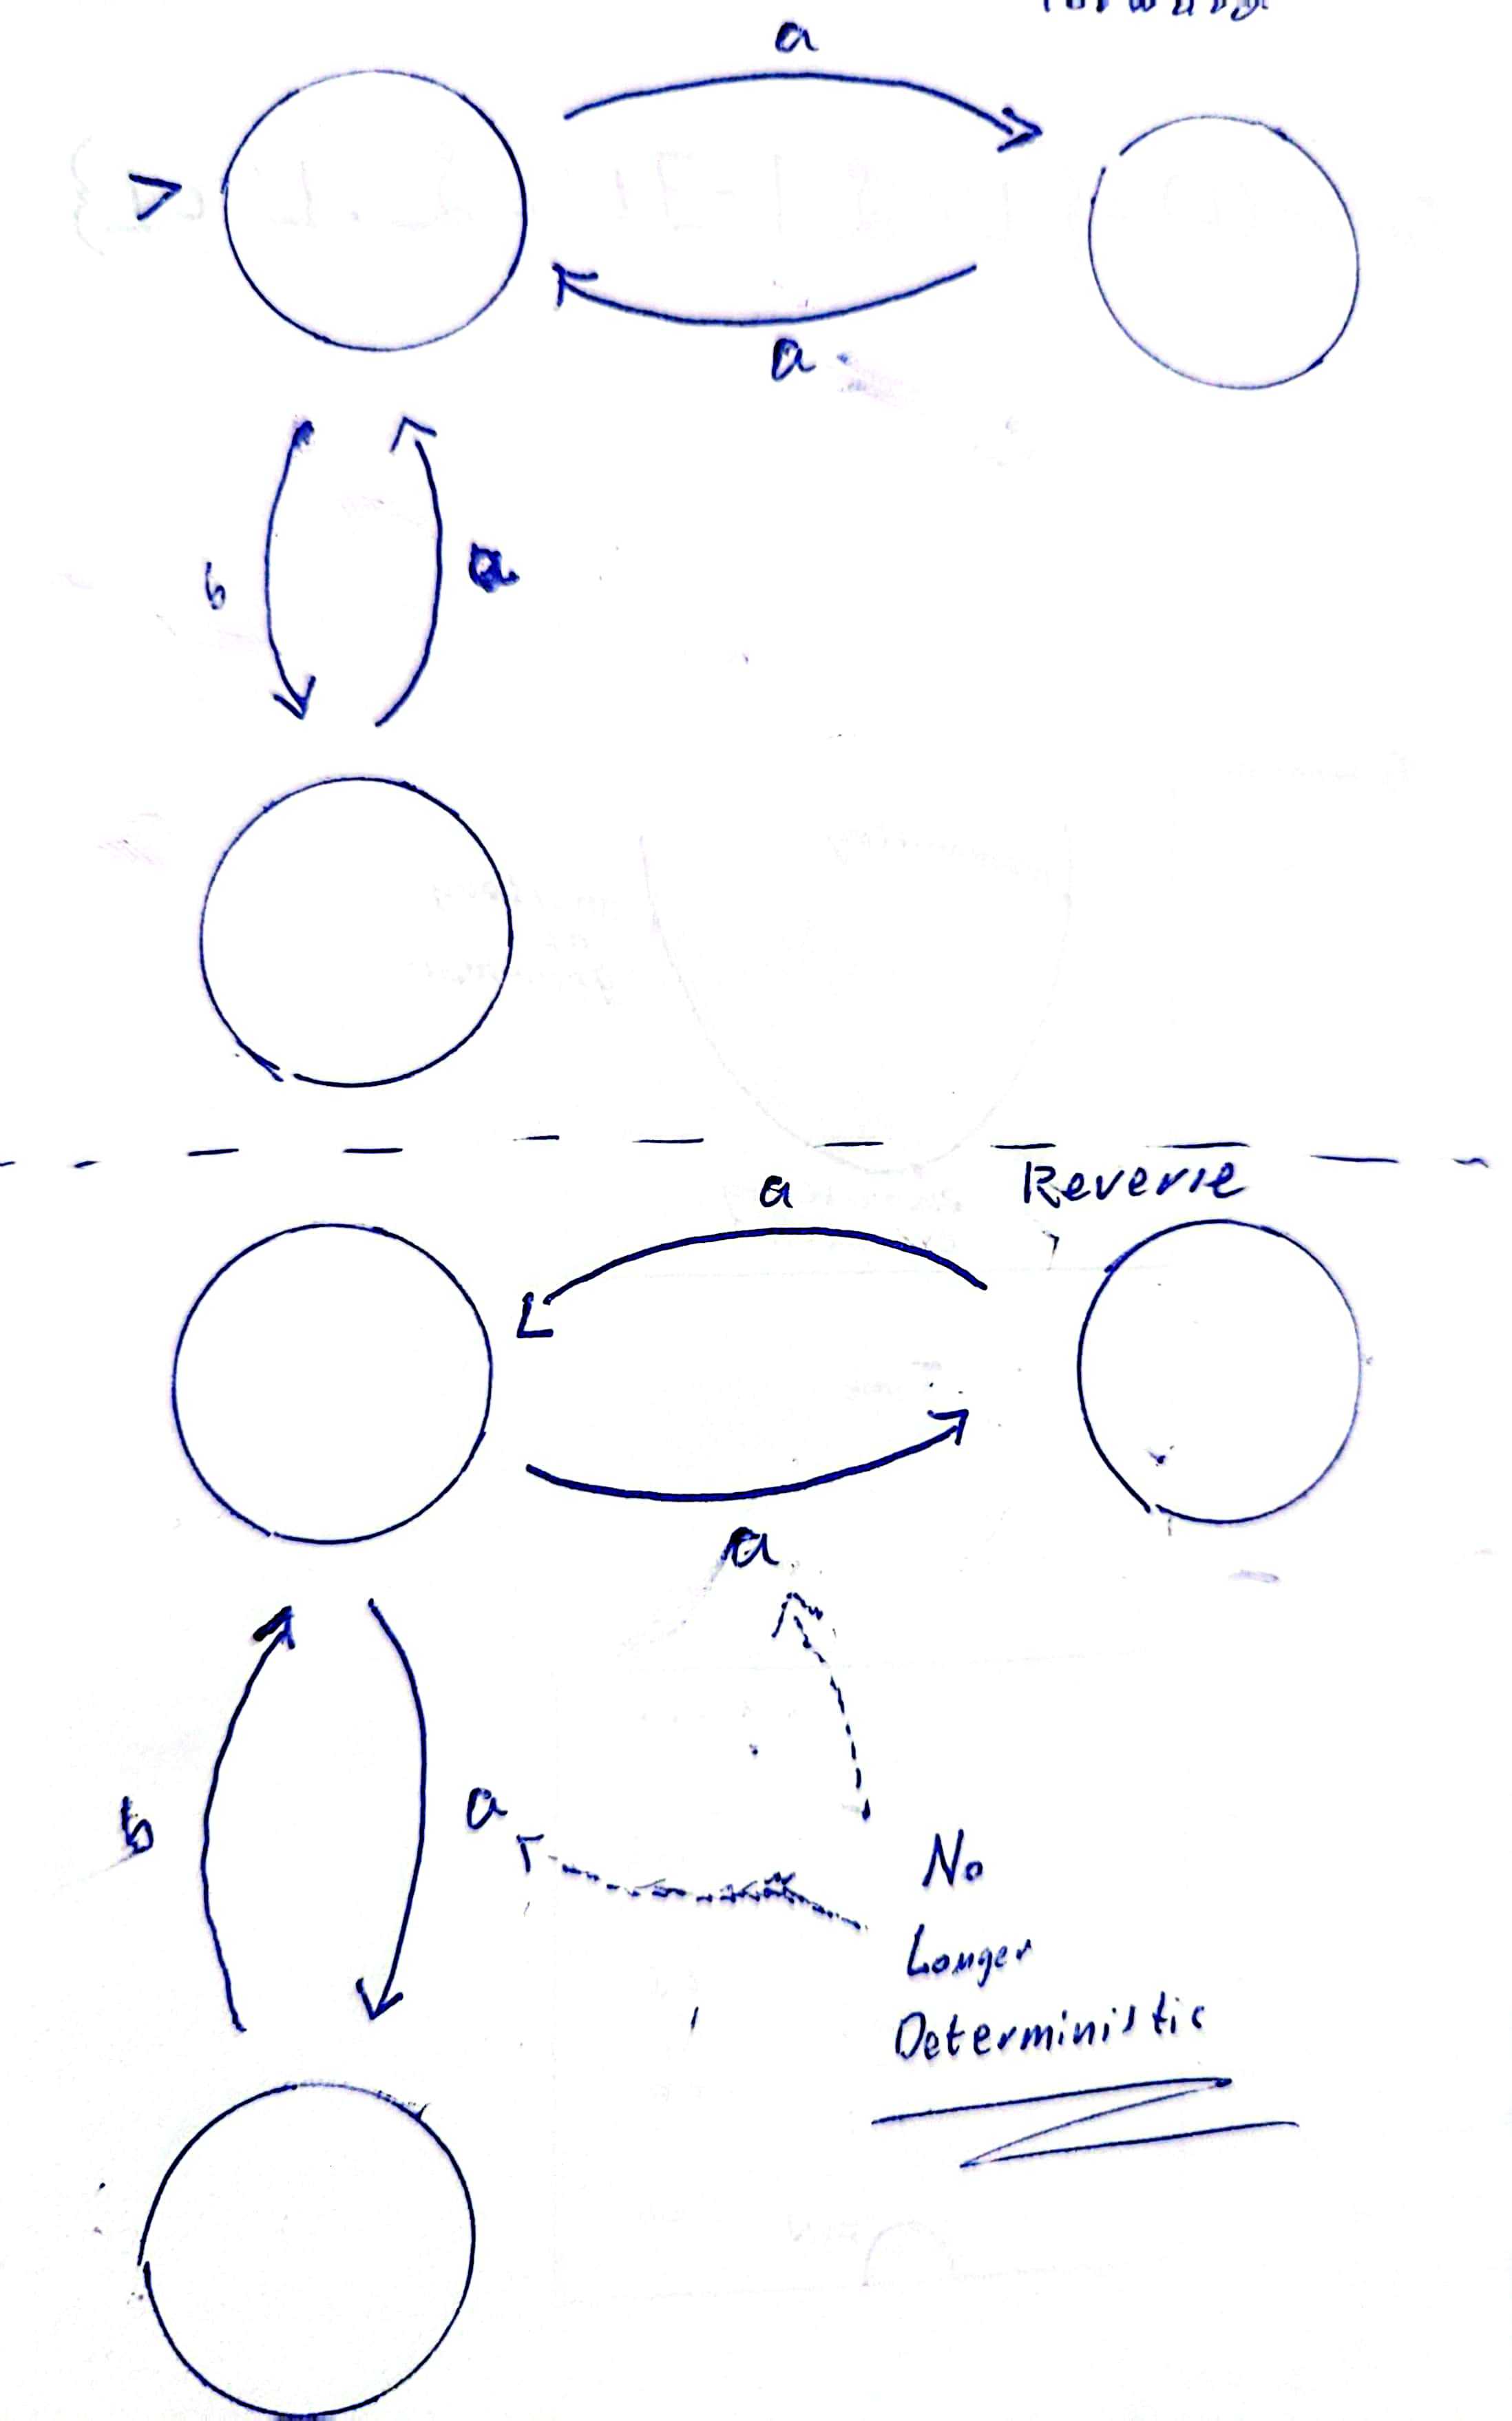 a
>
a
b
a
Reverse
a
a
b
a
No
Longer
Deterministic